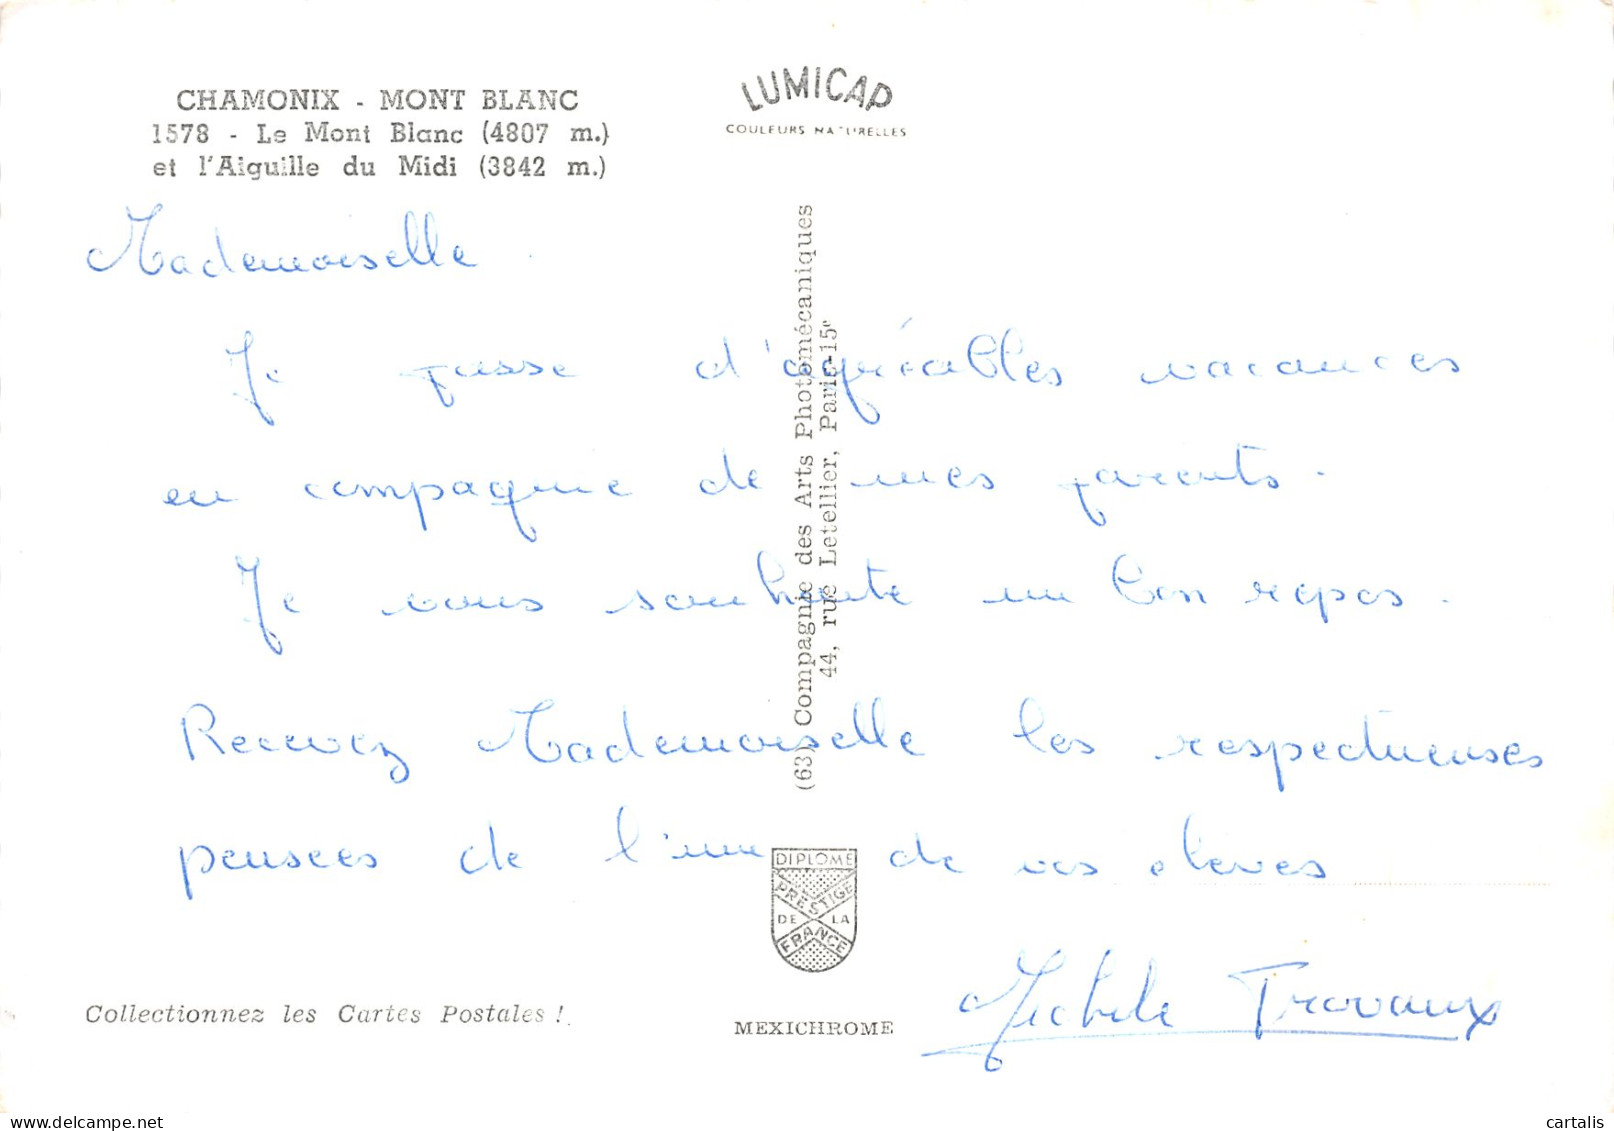 CHAMONIX - MONT BLANC
1578 - Le Mont Blanc (4807 m.)
et l'Aiguille du Midi (3842 m.)
LUMICAP
COULEURS NATURELLES
Mademoiselle
Je passe d'agréables vacances
en compagnie de mes parents.
Je vous souhaite un bon repos.
Recevez Mademoiselle les respectueuses
pensees de l'une de vos élèves
Michele Travaux
(63) Compagnie des Arts Photomécaniques
44, rue Letellier, Paris-15e
DIPLOME
PRESTIGE
DE LA
FRANCE
Collectionnez les Cartes Postales !
MEXICHROME
delcampe.net
cartalis